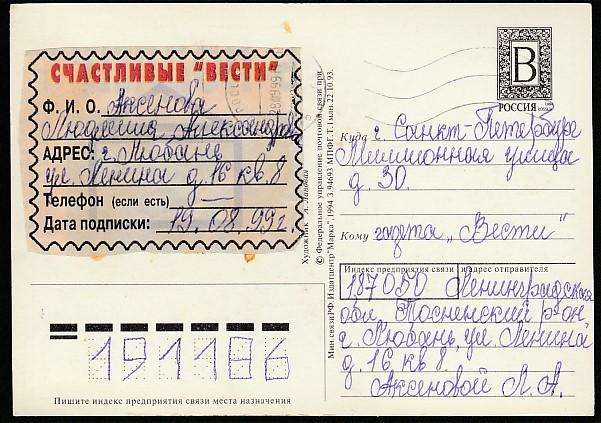 СЧАСТЛИВЫЕ "ВЕСТИ"
Ф. И. О. Аксенова
Людмила Александровна
АДРЕС: г. Любань
ул. Ленина д. 16 кв. 8
Телефон (если есть) —
Дата подписки: 19. 08. 99 г.
191186
Пишите индекс предприятия связи места назначения
© Федеральное управление почтовой связи при
Мин связи РФ. Издатцентр "Марка". 1994 З.94693 МПФГ. Т. 1 млн. 22.10.93.
B
РОССИЯ
Куда г. Санкт-Петербург
Миллионная улица
д. 30.
Кому газета „Вести"
Индекс предприятия связи и адрес отправителя
187050 Ленинградская
обл. Тосненский р-он
г. Любань, ул. Ленина
д. 16, кв 8.
Аксеновой Л. А.